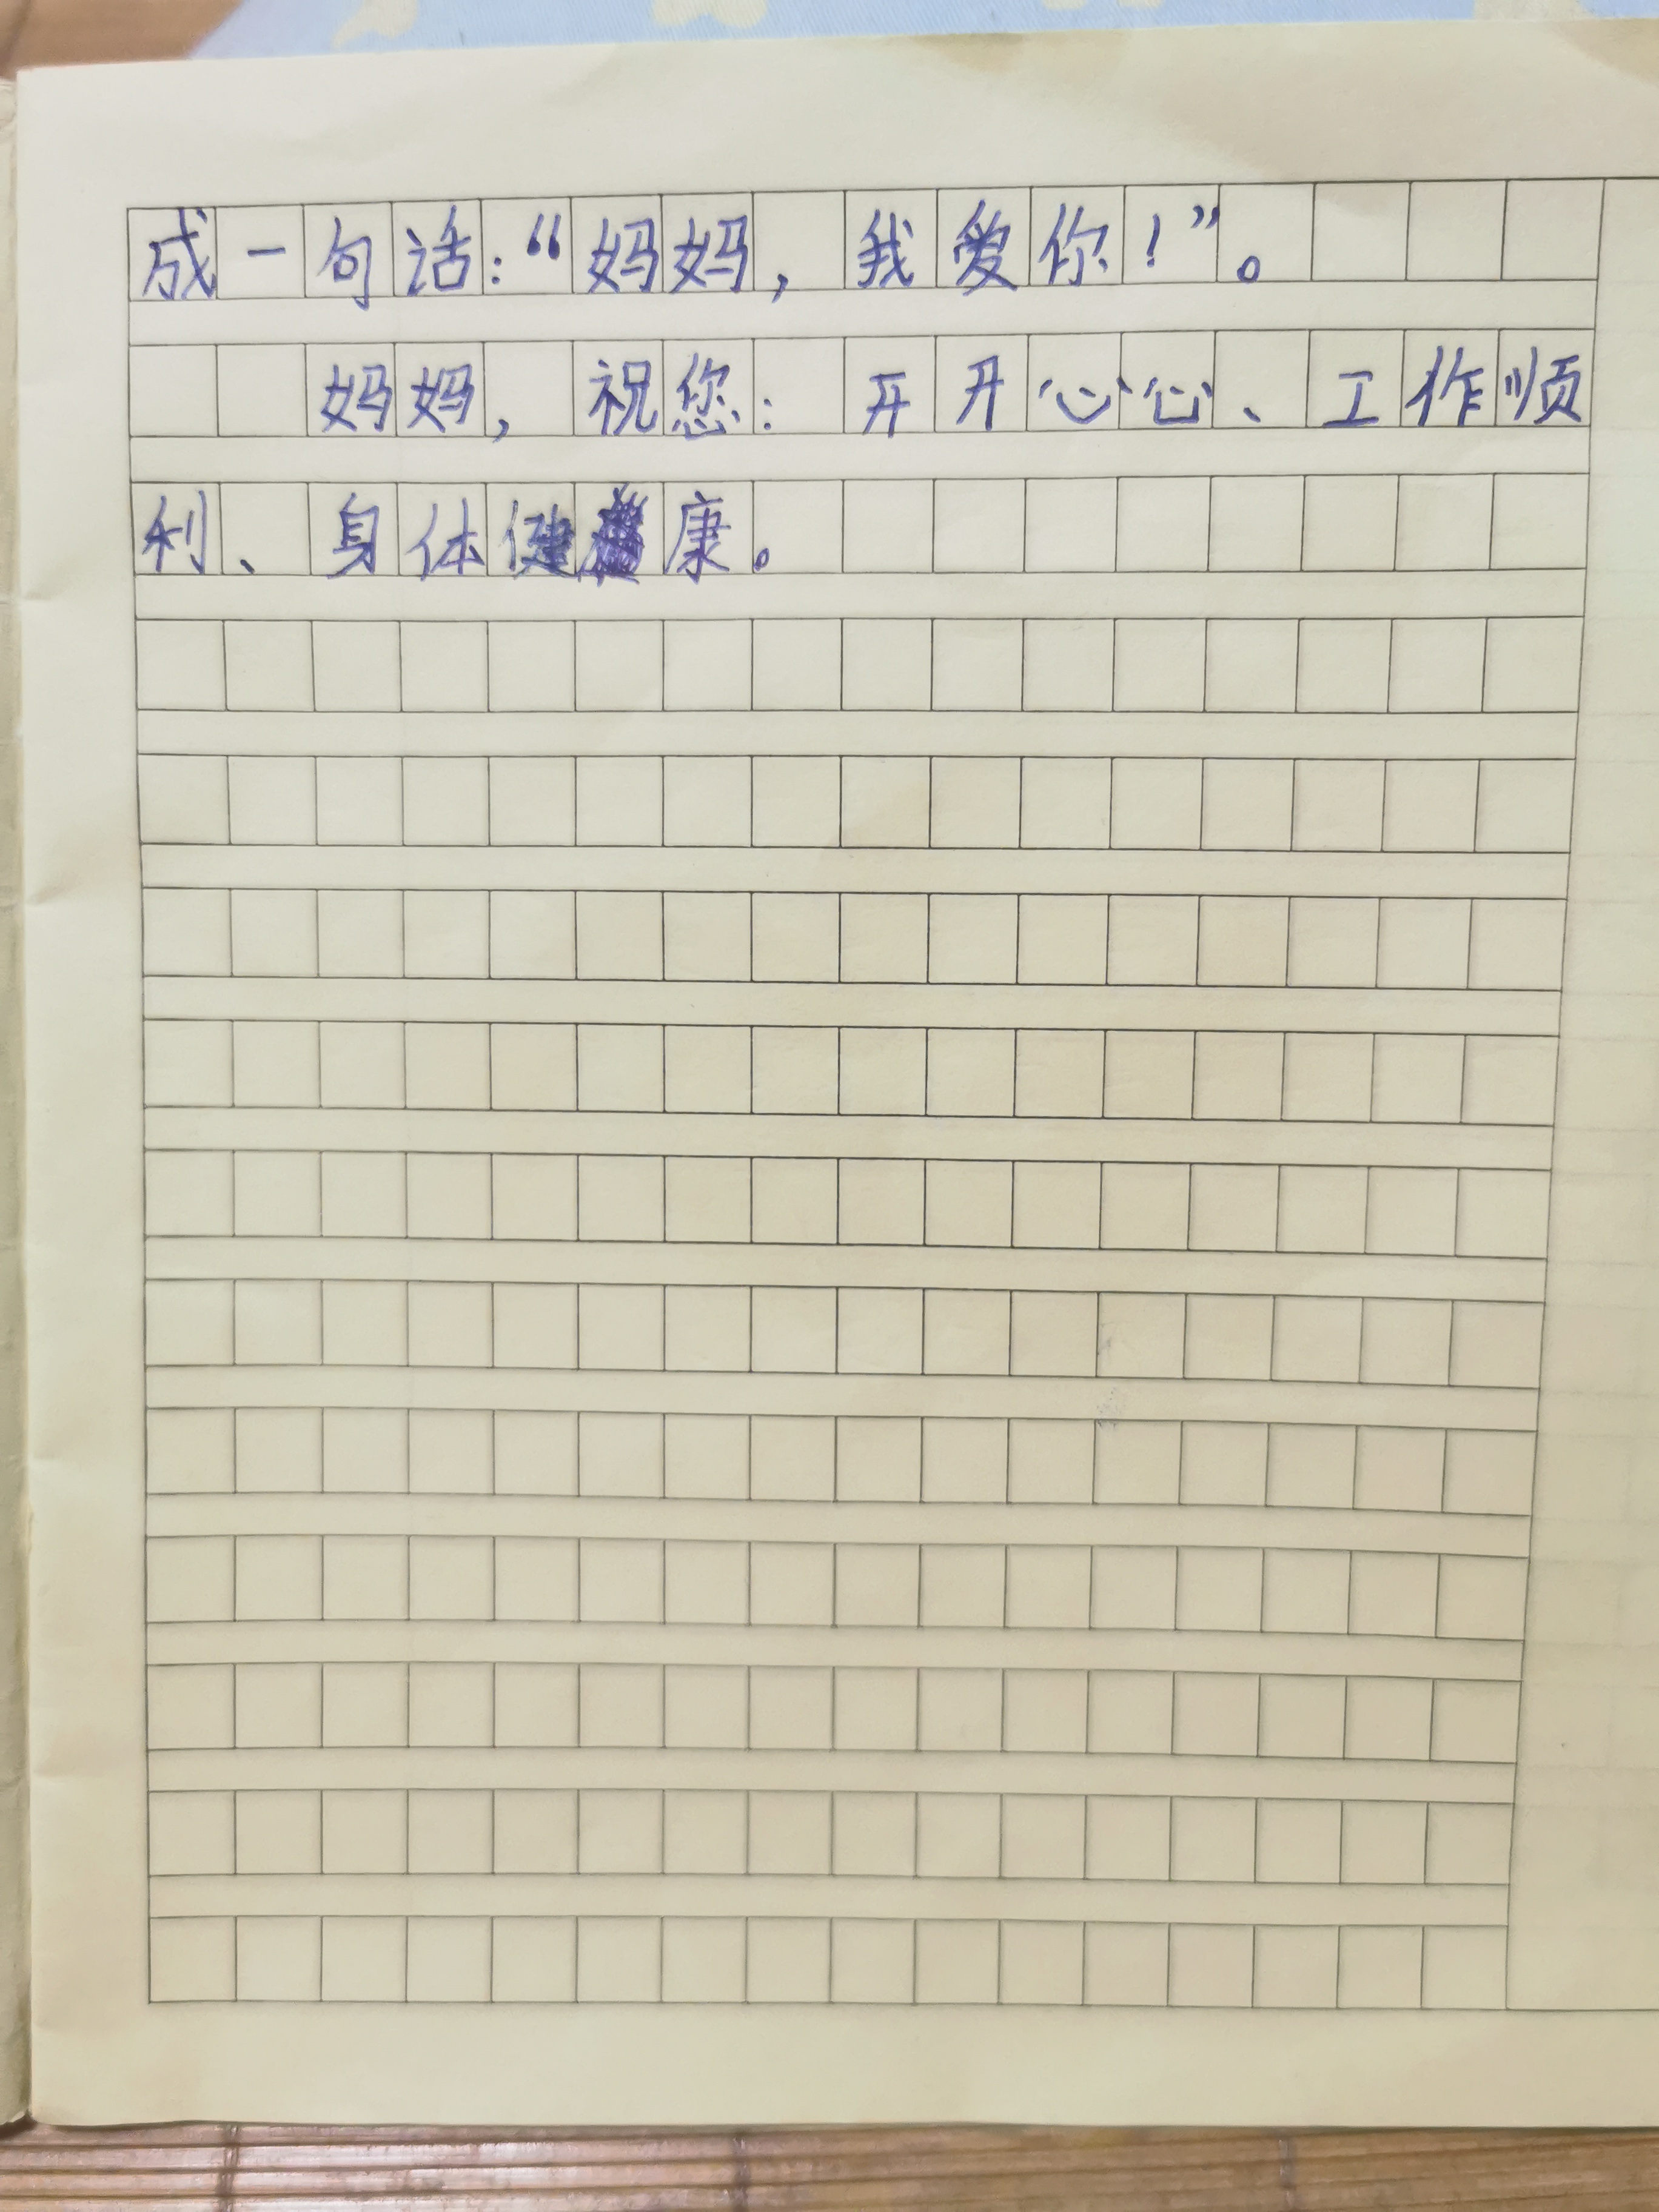 成一句话：“妈妈，我爱你！”。
妈妈，祝您：开开心心、工作顺
利、身体健康。